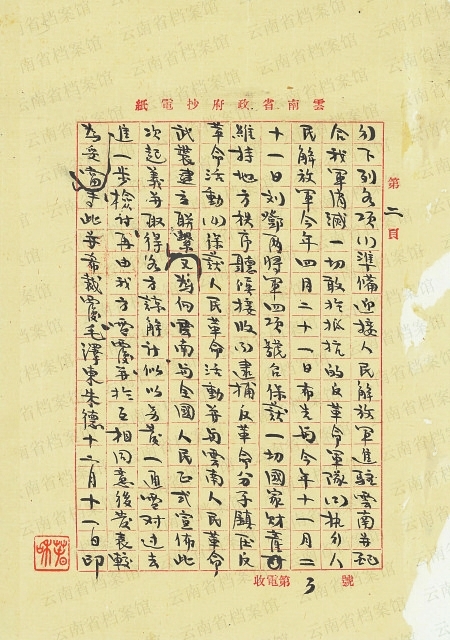 雲南省政府抄電紙
第二頁
行下列各項(1)準備迎接人民解放軍進駐雲南並配
合我軍消滅一切敢於抵抗的反革命軍隊(2)执行人
民解放軍今年四月二十一日布告與今年十一月二
十一日刘鄧兩將軍四項號召保護一切國家財產
維持地方秩序聽候接收(3)逮捕反革命分子鎮压反
革命活動(4)保護人民革命活動並與雲南人民革命
武裝建立联繫又為向雲南與全國人民正式宣佈此
次起義並取得各方諒解計似以先發一通電对过去
進一步檢討再由我方電覆並於互相同意後發表較
為妥當 此並希裁覆毛澤東朱德十二月十一日印
收電第3號
云南省档案馆